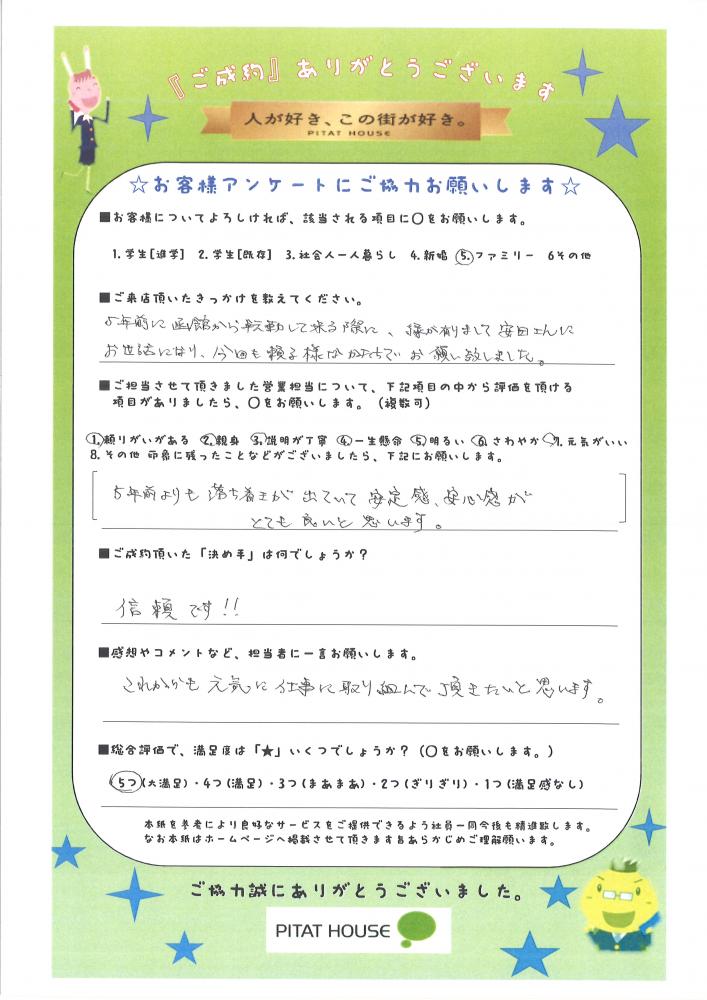 『ご成約』ありがとうございます
人が好き、この街が好き。
PITAT HOUSE
☆お客様アンケートにご協力お願いします☆
■お客様についてよろしければ、該当される項目に〇をお願いします。
1.学生[進学] 2.学生[既存] 3.社会人一人暮らし 4.新婚 5.ファミリー 6その他
■ご来店頂いたきっかけを教えてください。
5年前に函館から転勤して来る際に、縁が有りまして安田さんに
お世話になり、今回も頼る様なかたちでお願い致しました。
■ご担当させて頂きました営業担当について、下記項目の中から評価を頂ける
項目がありましたら、〇をお願いします。(複数可)
1.頼りがいがある 2.親身 3.説明が丁寧 4.一生懸命 5.明るい 6.さわやか 7.元気がいい
8.その他 印象に残ったことなどがございましたら、下記にお願いします。
5年前よりも落ち着きが出ていて安定感、安心感が
とても良いと思います。
■ご成約頂いた「決め手」は何でしょうか?
信頼です!!
■感想やコメントなど、担当者に一言お願いします。
これからも元気に仕事に取り組んで頂きたいと思います。
■総合評価で、満足度は「★」いくつでしょうか?(〇をお願いします。)
5つ(大満足)・4つ(満足)・3つ(まあまあ)・2つ(ぎりぎり)・1つ(満足感なし)
本紙を参考により良好なサービスをご提供できるよう社員一同今後も精進致します。
なお本紙はホームページへ掲載させて頂きます旨あらかじめご理解願います。
ご協力誠にありがとうございました。
PITAT HOUSE